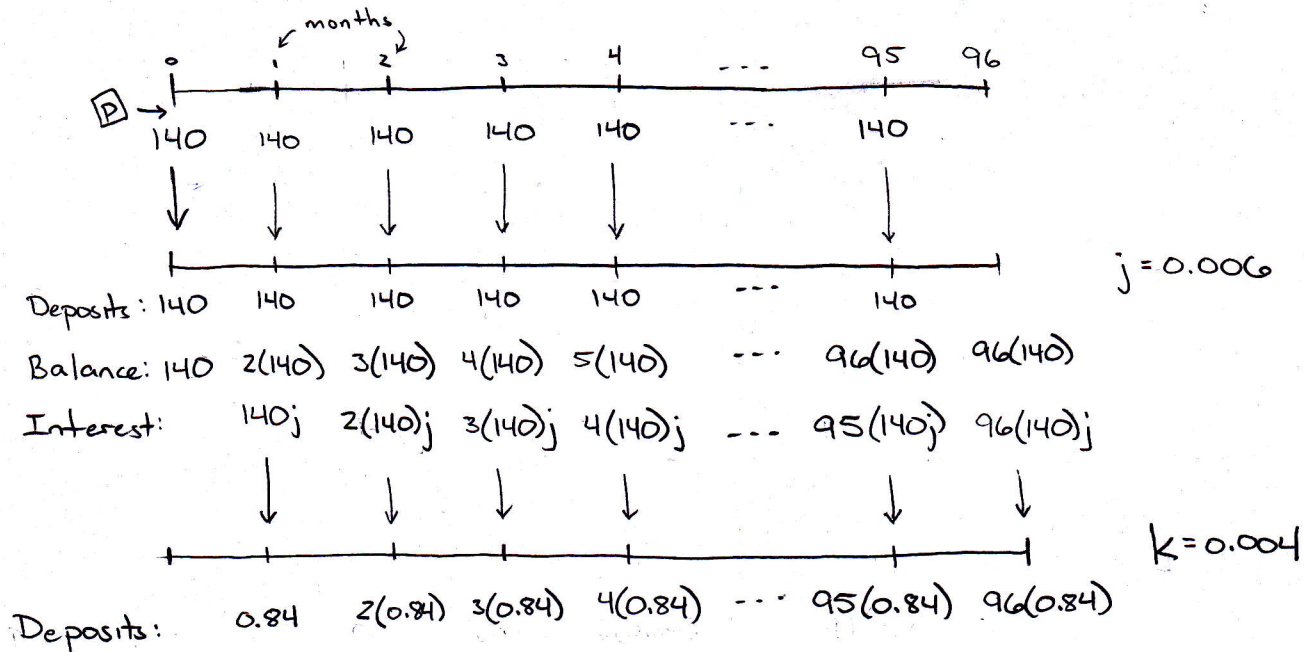 months
0 1 2 3 4 ---- 95 96
P → 140 140 140 140 140 ---- 140
j = 0.006
Deposits: 140 140 140 140 140 ---- 140
Balance: 140 2(140) 3(140) 4(140) 5(140) ---- 96(140) 96(140)
Interest: 140j 2(140)j 3(140)j 4(140)j ---- 95(140j) 96(140)j
k = 0.004
Deposits: 0.84 2(0.84) 3(0.84) 4(0.84) ---- 95(0.84) 96(0.84)